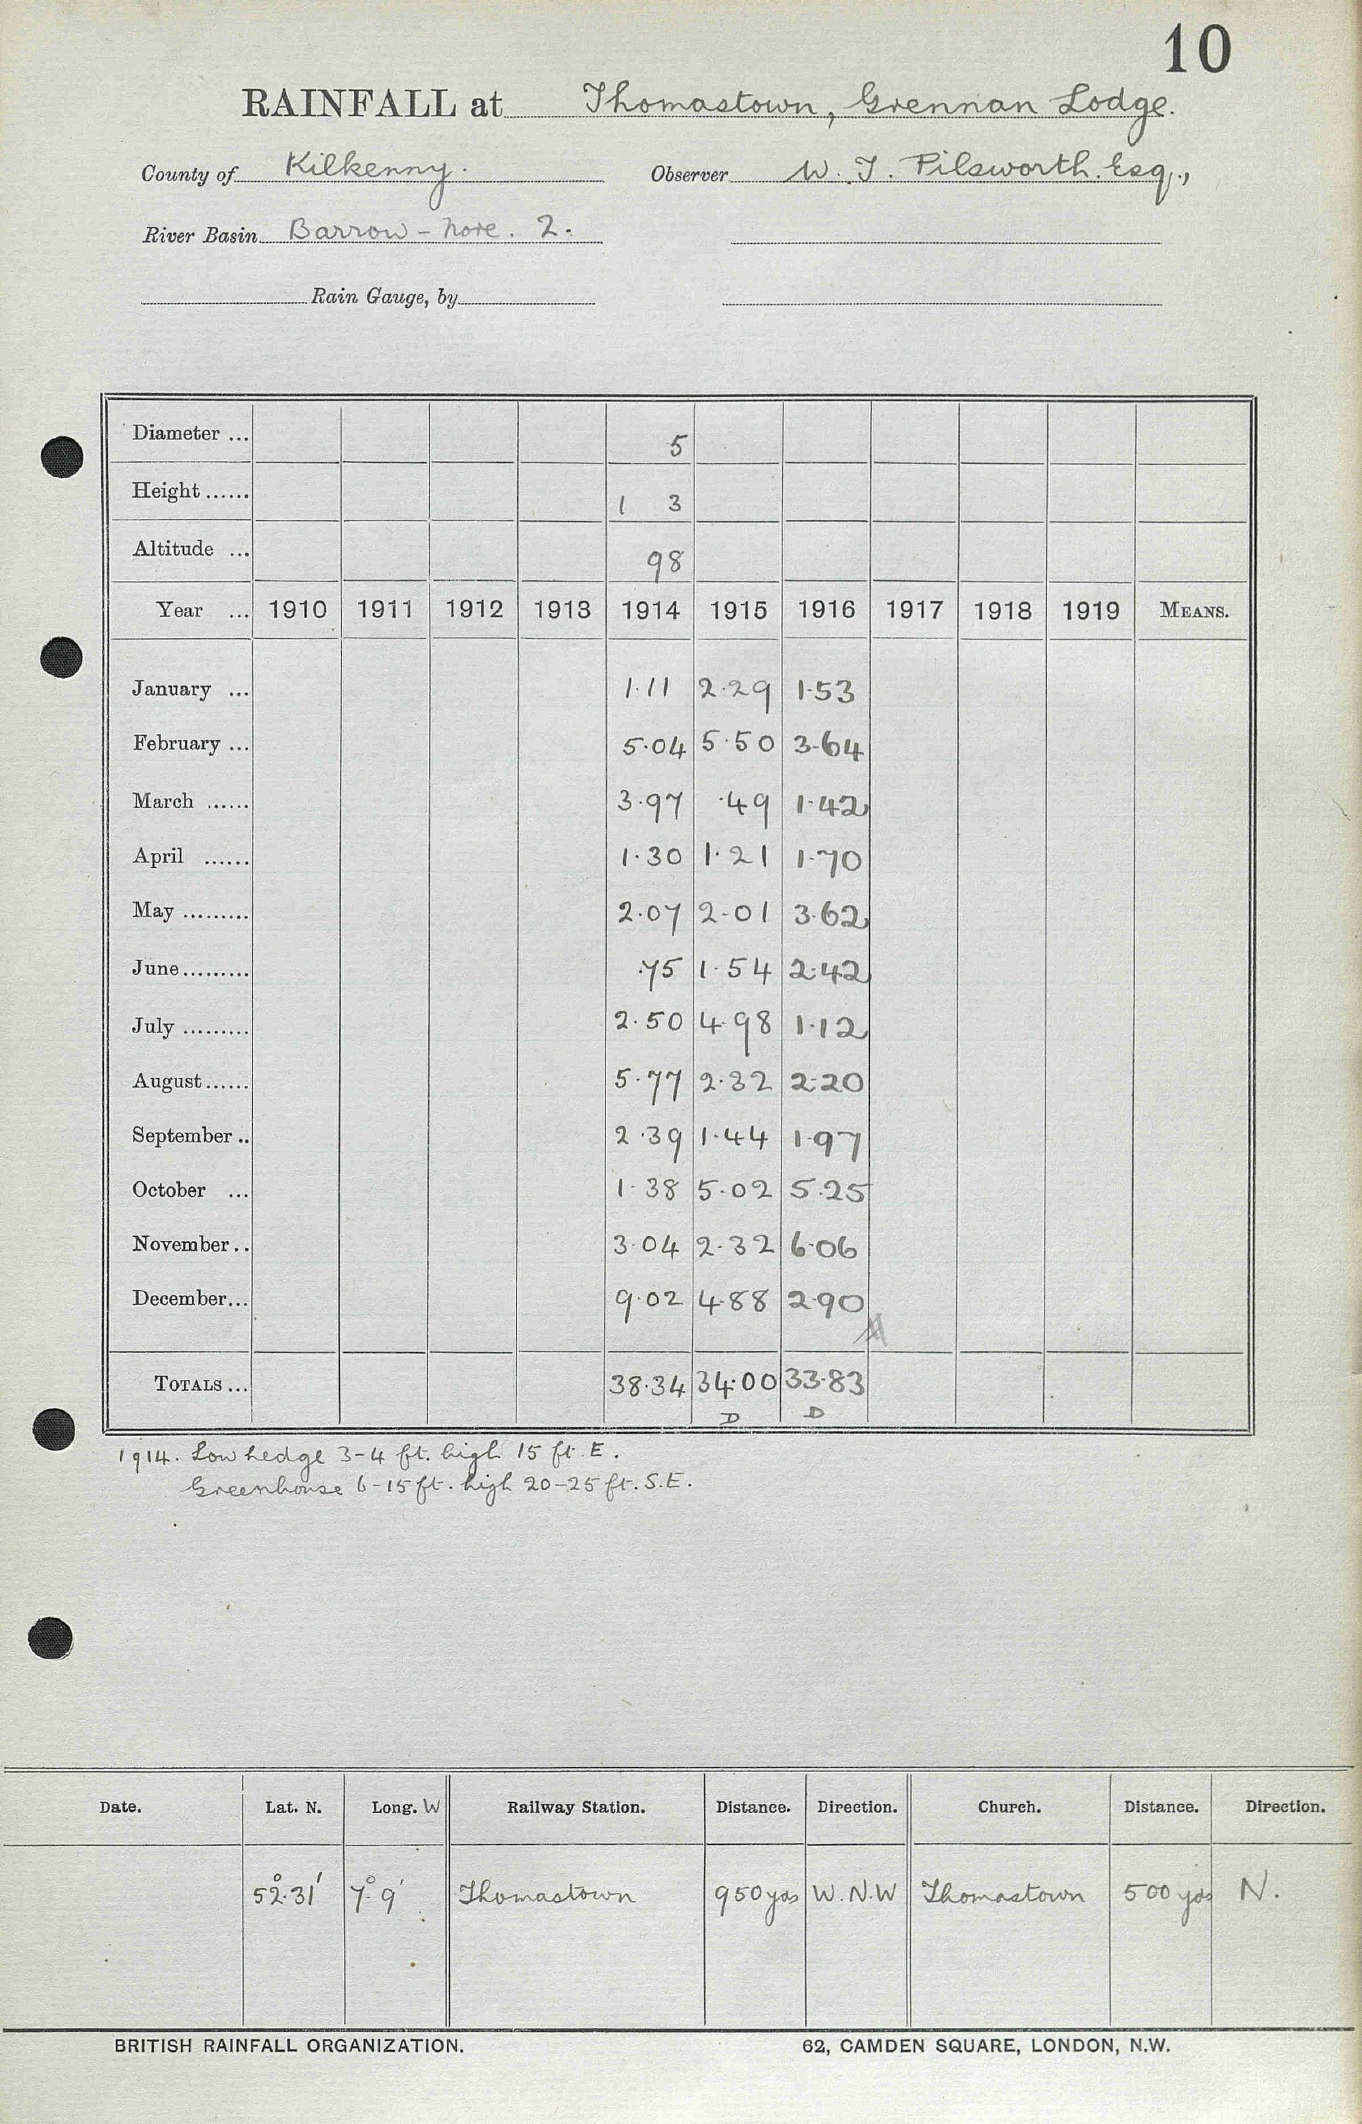 10
RAINFALL at Thomastown, Grennan Lodge.
County of Kilkenny. Observer W. J. Pilsworth. Esq.,
River Basin Barrow - Nore. 2.
Rain Gauge, by
Diameter ... 5
Height ...... 1 3
Altitude ... 98
Year ... 1910 1911 1912 1913 1914 1915 1916 1917 1918 1919 MEANS.
January ... 1.11 2.29 1.53
February ... 5.04 5.50 3.64
March ...... 3.97 .49 1.42
April ...... 1.30 1.21 1.70
May ......... 2.07 2.01 3.62
June ......... .75 1.54 2.42
July ......... 2.50 4.98 1.12
August ...... 5.77 2.32 2.20
September .. 2.39 1.44 1.97
October ... 1.38 5.02 5.25
November .. 3.04 2.32 6.06
December ... 9.02 4.88 2.90
TOTALS ... 38.34 34.00 33.83
D D
1914. Low hedge 3-4 ft. high 15 ft. E.
Greenhouse 6-15 ft. high 20-25 ft. S.E.
Date. Lat. N. Long. W Railway Station. Distance. Direction. Church. Distance. Direction.
52°.31' 7°.9' Thomastown 950 yds W.N.W Thomastown 500 yds N.
BRITISH RAINFALL ORGANIZATION. 62, CAMDEN SQUARE, LONDON, N.W.